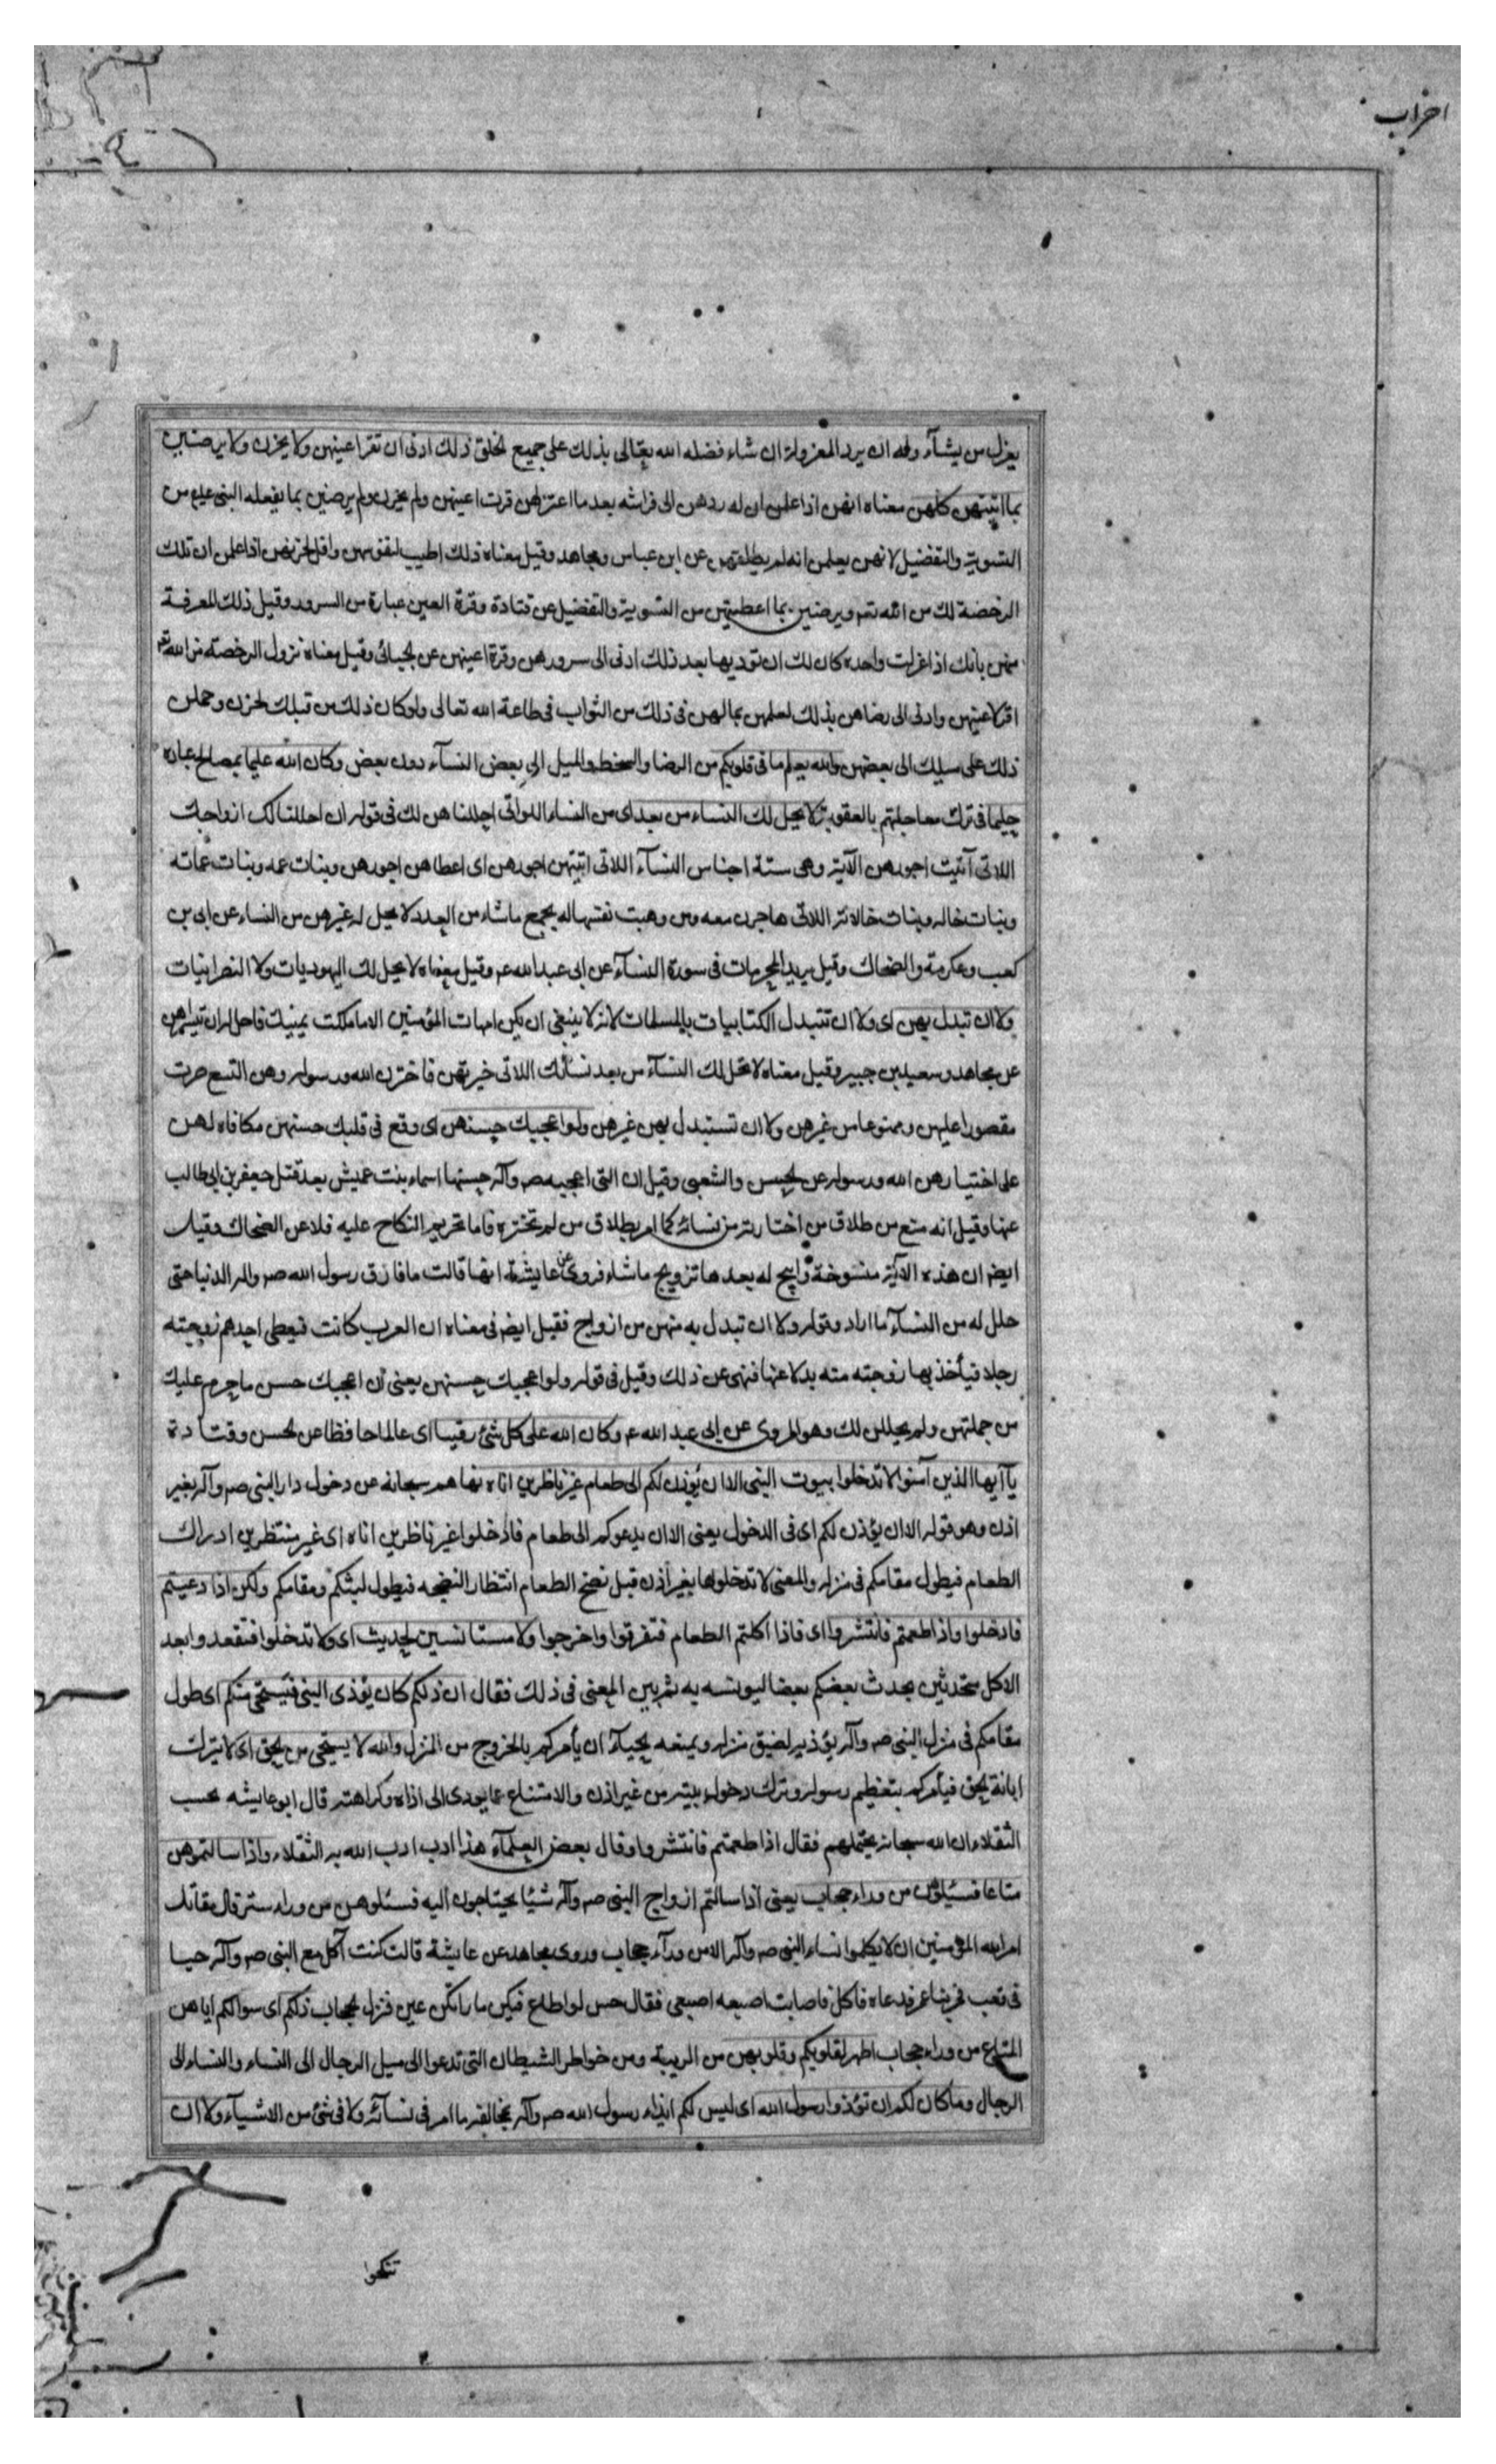 احزاب
يعزل من يشآء وله ان يرد المعزولة ان شاء فضله الله تعالى بذلك على جميع الخلق ذلك ادنى ان تقر اعينهن ولا يحزن ولا يرضين
بما اتيتهن كلهن معناه انهن اذا علمن ان له ردهن الى فراشه بعد ما اعتزلهن قرت اعينهن ولم يحزن ولم يرضين بما يفعله النبى عليه من
التسوية والتفضيل لانهن يعلمن انه لم يطلقهن عن ابن عباس ومجاهد وقيل معناه ذلك اطيب لنفوسهن واقل لحزنهن اذا علمن ان تلك
الرخصة لك من الله تعم ويرضين بما اعطيتهن من التسوية والتفضيل عن قتادة وقرة العين عبارة من السرور وقيل ذلك المعرفة
منهن بانك اذا عزلت واحدة كان لك ان تؤديها بعد ذلك ادنى الى سرورهن وقرة اعينهن عن الجبائى وقيل معناه نزول الرخصة من الله تعم
اقر لاعينهن وادنى الى رضاهن بذلك لعلمهن بمالهن فى ذلك من الثواب فى طاعة الله تعالى ولو كان ذلك من قبلك لحزن وحملن
ذلك على ميلك الى بعضهن والله يعلم ما فى قلوبكم من الرضا والسخط والميل الى بعض النسآء دون بعض وكان الله عليما بمصالح عباده
حليما فى ترك معاجلتهم بالعقوبة لا يحل لك النساء من بعد اى من النساء اللواتى احللناهن لك فى قوله ان احللنا لك ازواجك
اللاتى آتيت اجورهن الآية وهى ستة اجناس النسآء اللاتى اتيتهن اجورهن اى اعطاهن اجورهن وبنات عمه وبنات عماته
وبنات خاله وبنات خالاته اللاتى هاجرن معه ومن وهبت نفسها له يجمع ما شاء من العدد لا يحل له غيرهن من النساء عن ابى بن
كعب وعكرمة والضحاك وقيل يريد المحرمات فى سورة النسآء عن ابى عبد الله عم وقيل معناه لا يحل لك اليهوديات ولا النصرانيات
ولا ان تبدل بهن اى ولا ان تتبدل الكتابيات بالمسلمات لانه لا ينبغى ان يكن امهات المؤمنين الا ما ملكت يمينك فاحل له ان يتسراهن
عن مجاهد وسعيد بن جبير وقيل معناه لا تحل لك النسآء من بعد نسائك اللاتى خيرتهن فاخترن الله ورسوله وهن التسع صرت
مقصورا عليهن وممنوعا من غيرهن ولا ان تستبدل بهن غيرهن ولو اعجبك حسنهن اى وقع فى قلبك حسنهن مكافاة لهن
على اختيارهن الله ورسوله عن الحسن والشعبى وقيل ان التى اعجبه صم وآله حسنها اسماء بنت عميش بعد قتل جعفر بن ابى طالب
عنها وقيل انه منع من طلاق من اختارته من نسائه كما امر بطلاق من لم تختره فاما تحريم النكاح عليه فلا عن الضحاك وقيل
ايضم ان هذه الآية منسوخة وابيح له بعدها تزويج ما شاء فروى عن عايشة انها قالت ما فارق رسول الله صم وآله الدنيا حتى
حلل له من النسآء ما اراد وقوله ولا ان تبدل به منهن من ازواج فقيل ايضم فى معناه ان العرب كانت فيعطى احدهم زوجته
رجلا فيأخذ بها زوجته مته بدلا عنها فنهى عن ذلك وقيل فى قوله ولو اعجبك حسنهن يعنى ان اعجبك حسن ما حرم عليك
من جملتهن ولم يحللن لك وهو المروى عن ابى عبد الله عم وكان الله على كل شئ رقيبا اى عالما حافظا عن الحسن وقتادة
يآ ايها الذين آمنوا لا تدخلوا بيوت النبى الا ان يؤذن لكم الى طعام غير ناظرين اناه نهاهم سبحانه عن دخول دار النبى صم وآله بغير
اذن وهو قوله الا ان يؤذن لكم اى فى الدخول يعنى الا ان يدعوكم الى طعام فادخلوا غير ناظرين اناه اى غير منتظرين ادراك
الطعام فيطول مقامكم فى منزله والمعنى لا تدخلوها بغير اذن قبل نضج الطعام انتظار النضجه فيطول لبثكم ومقامكم ولكن اذا دعيتم
فادخلوا واذا طعمتم فانتشروا اى فاذا اكلتم الطعام فتفرقوا واخرجوا ولا مستانسين لحديث اى ولا تدخلوا فتقعدوا بعد
الاكل متحدثين يحدث بعضكم بعضا ليونسه به ثم بين المعنى فى ذلك فقال ان ذلكم كان يؤذى النبى فيستحى منكم اى طول
مقامكم فى منزل النبى صم وآله يؤذيه لضيق منزله ويمنعه الحيآء ان يأمركم بالخروج من المنزل والله لا يستحى من الحق اى لا يترك
ابانة الحق فيأمركم بتعظيم رسوله وترك دخول بيته من غير اذن والامتناع عما يودى الى اذاه وكراهته قال ابو عايشه يحسب
الثقلاء ان الله سبحانه يحتملهم فقال اذا طعمتم فانتشروا وقال بعض العلمآء هذا ادب ادب الله به الثقلاء واذا سالتموهن
متاعا فسئلوهن من وراء حجاب يعنى اذا سالتم ازواج النبى صم وآله شيئا يحتاجون اليه فسئلوهن من وراء ستر قال مقاتل
امر الله المؤمنين ان لا يكلموا نساء النبى صم وآله الا من ورآء حجاب وروى مجاهد عن عايشة قالت كنت آكل مع النبى صم وآله حيسا
فى قعب فمر بنا عمر فدعاه فاكل فاصابت اصبعه اصبعى فقال حس لو اطاع فيكن ما راتكن عين فنزل الحجاب ذلكم اى سوالكم اياهن
المتاع من وراء حجاب اطهر لقلوبكم وقلوبهن من الريبة ومن خواطر الشيطان التى تدعوا الى ميل الرجال الى النساء والنساء الى
الرجال وما كان لكم ان تؤذوا رسول الله اى ليس لكم ايذاء رسول الله صم وآله بمخالفة ما امر فى نسآئه ولا فى شئ من الاشيآء ولا ان
تنكحوا